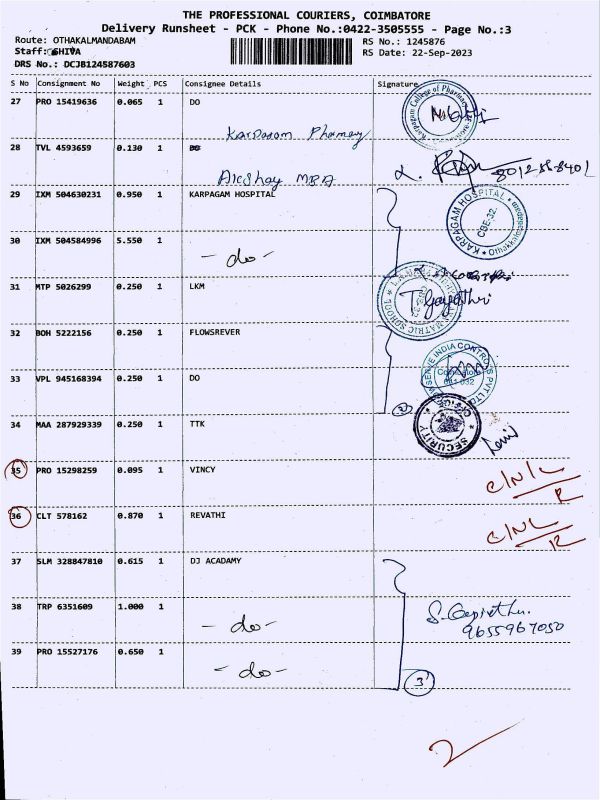 THE PROFESSIONAL COURIERS, COIMBATORE
Delivery Runsheet - PCK - Phone No.:0422-3505555 - Page No.:3
Route: OTHAKALMANDABAM RS No.: 1245876
Staff: SHIVA RS Date: 22-Sep-2023
DRS No.: DCJB124587603
S No Consignment No Weight PCS Consignee Details Signature
27 PRO 15419636 0.065 1 DO
Karpagam Pharmacy
28 TVL 4593659 0.130 1
Akshay MBA
29 IXM 504630231 0.950 1 KARPAGAM HOSPITAL
KARPAGAM HOSPITAL
CBE-32
30 IXM 504584996 5.550 1 - do -
31 MTP 5026299 0.250 1 LKM
MATRIC SCHOOL
32 BOH 5222156 0.250 1 FLOWSREVER
33 VPL 945168394 0.250 1 DO
Coimbatore
641 032
2
34 MAA 287929339 0.250 1 TTK
SECURITY OFFICE
35 PRO 15298259 0.095 1 VINCY C/N/L
R
36 CLT 578162 0.870 1 REVATHI C/NL
R
37 SLM 328847810 0.615 1 DJ ACADAMY
38 TRP 6351609 1.000 1 - do -
9655967050
39 PRO 15527176 0.650 1 - do -
3
2